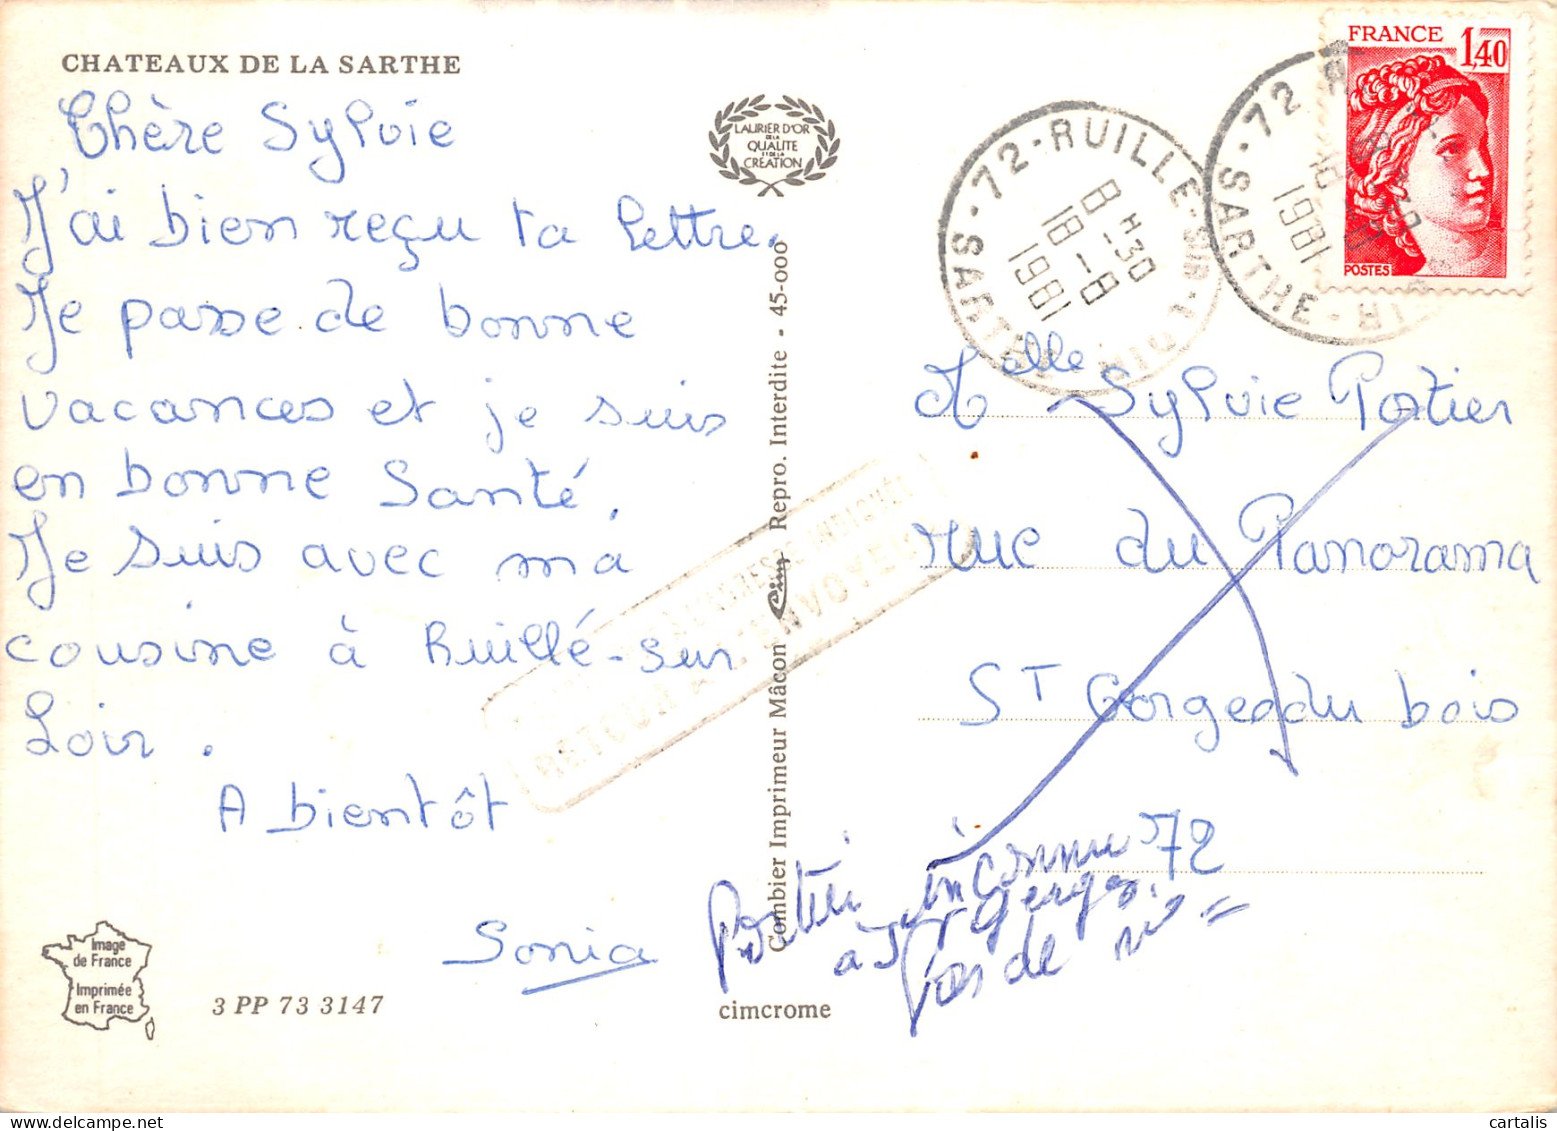 CHATEAUX DE LA SARTHE
Chère Sylvie
J'ai bien reçu ta lettre.
Je passe de bonne
vacances et je suis
en bonne Santé.
Je suis avec ma
cousine à Ruillé-sur
Loir.
A bientôt
Sonia
Image
de France
Imprimée
en France
3 PP 73 3147
LAURIER D'OR
DE LA
QUALITE
ET DE LA
CREATION
Combier Imprimeur Mâcon Cim Repro. Interdite - 45-000
cimcrome
RETOUR A L'ENVOYEUR
72-RUILLE-SUR-LOIR
SARTHE
8H30
18-8
1981
72
SARTHE
1981
FRANCE
1,40
POSTES
Melle Sylvie Portier
rue du Panorama
St Gorges du bois
72
inconnu
à St Gerges
Pas de
cartalis